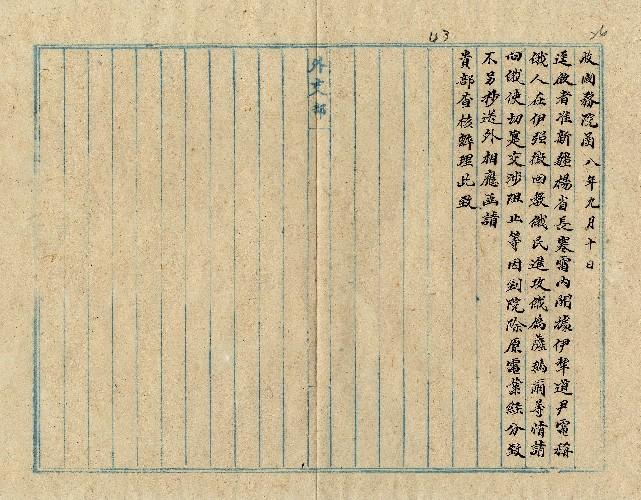 收國務院函八年九月十日
逕啟者准新疆楊省長寒電內開據伊犂道尹電稱
俄人在伊强徵回教俄民進攻俄屬薩瑪爾等情請
向俄使切寔交涉阻止等因到院除原電業經分致
不另抄送外相應函請
貴部查核辦理此致
外交部
43
26